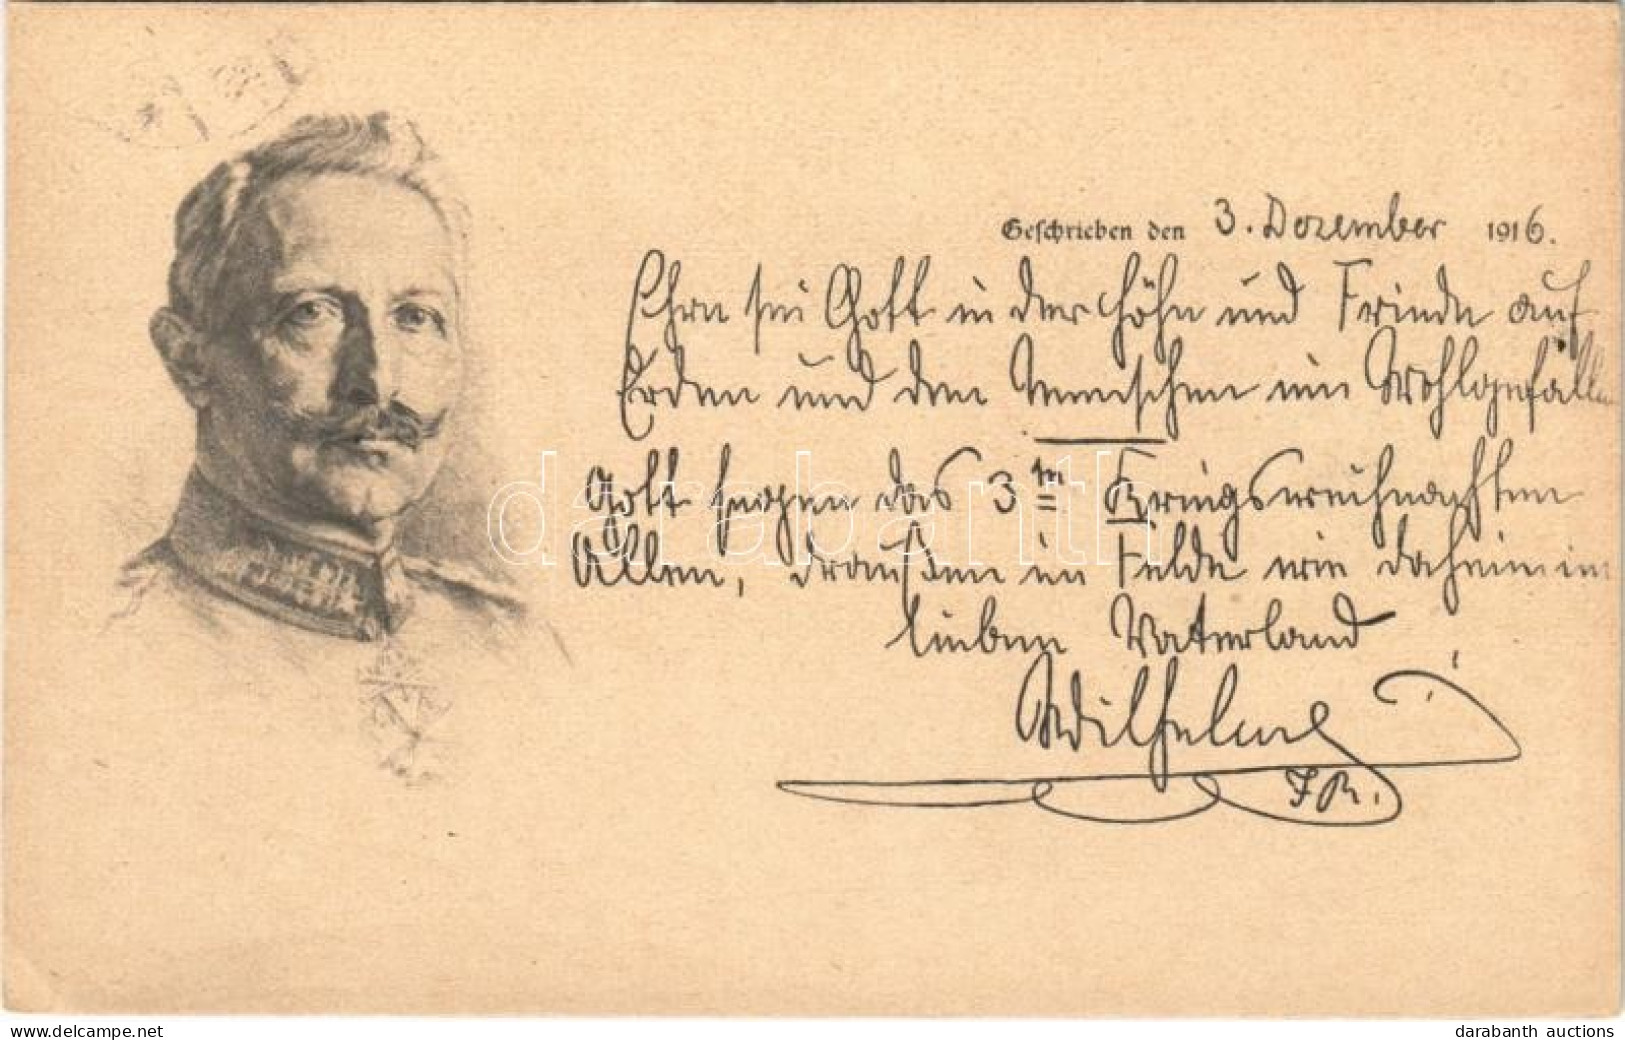 Geschrieben den 3. Dezember 1916.
Ehre sei Gott in der Höhe und Friede auf
Erden und den Menschen ein Wohlgefallen
Gott segne das 3te Kriegsweihnachten
Allen, draußen im Felde wie daheim im
lieben Vaterland
Wilhelm
I R.
darabanth
www.delcampe.net
darabanth auctions